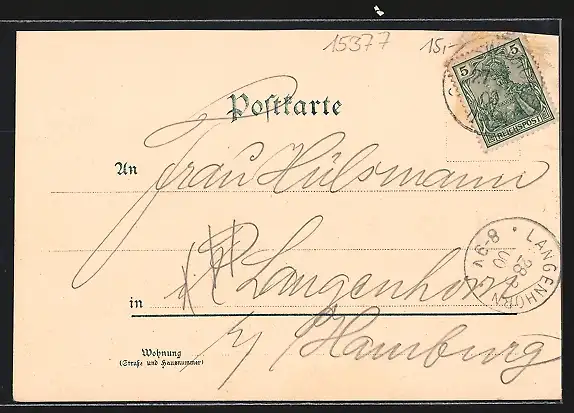 15377 15,-
5 5
REICHSPOST
Postkarte
An Frau Hülsmann
Langenhorn
in
b/ Hamburg
LANGENHORN
28
00
8-9V
Wohnung
(Straße und Hausnummer)